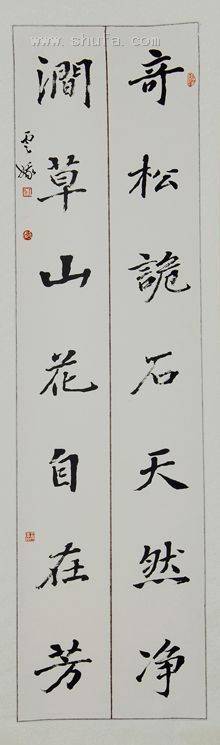 奇松詭石天然净
澗草山花自在芳
www.shufa.com